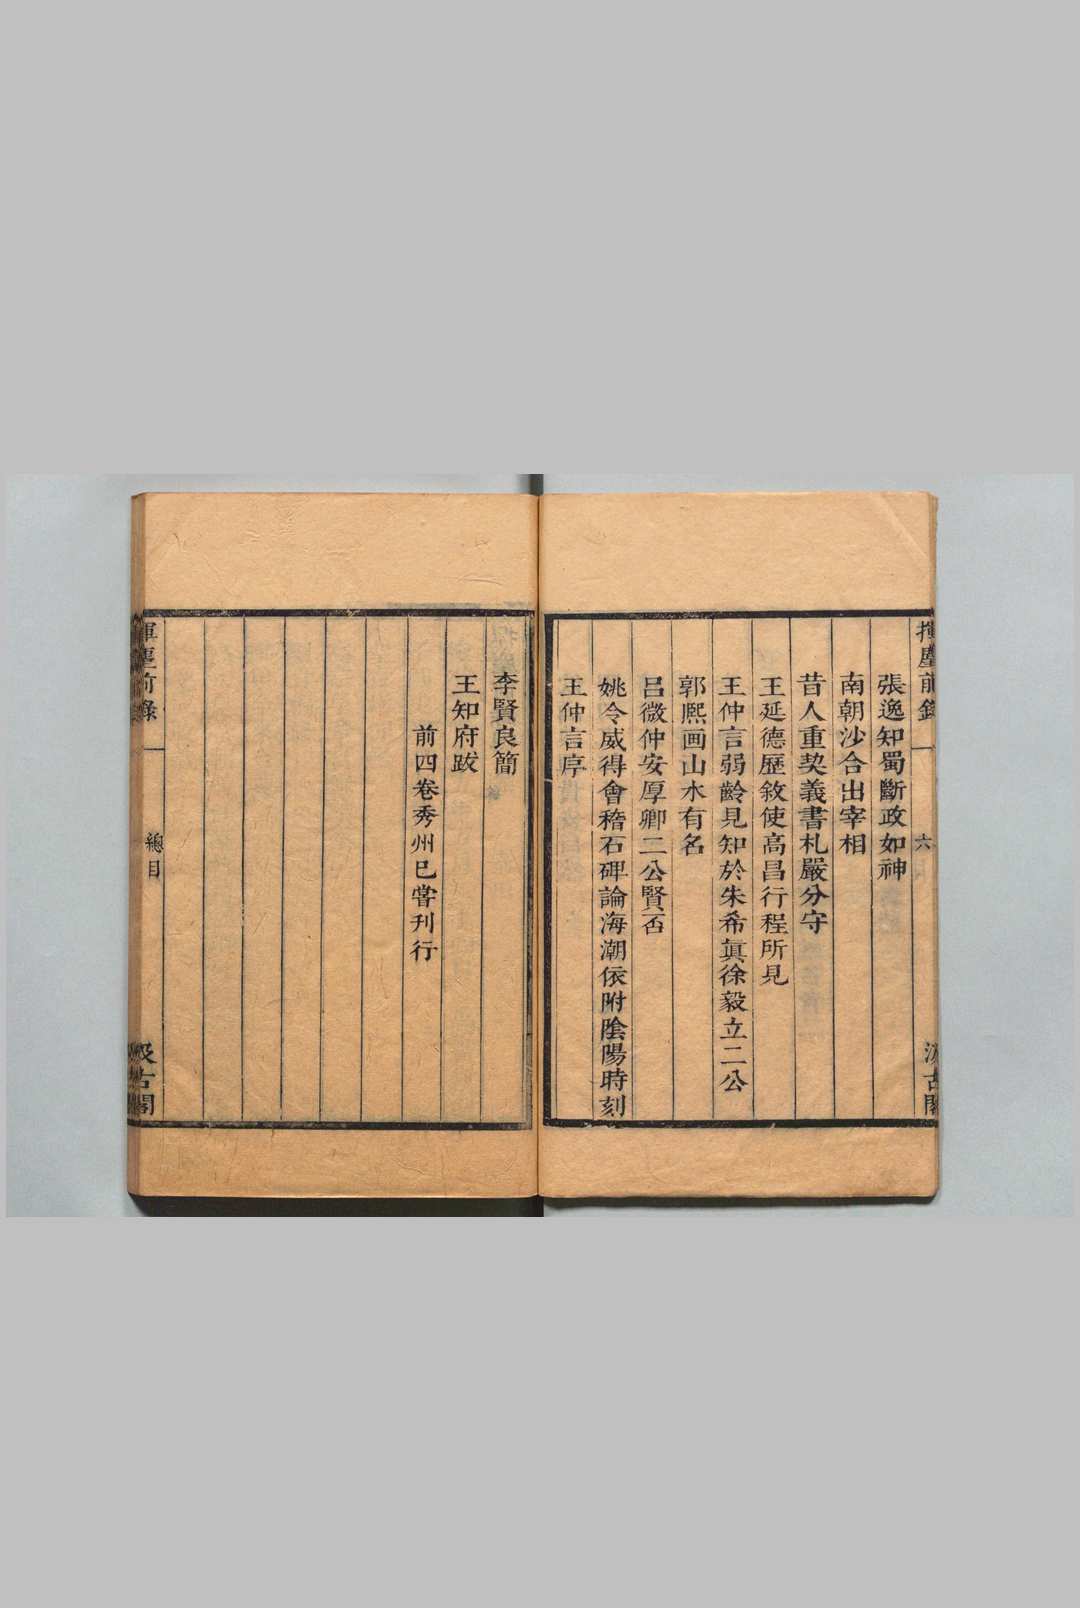 揮麈前錄
六
汲古閣
張逸知蜀斷政如神
南朝沙合出宰相
昔人重契義書札嚴分守
王延德歷敘使高昌行程所見
王仲言弱齡見知於朱希真徐敦立二公
郭熙画山水有名
呂微仲安厚卿二公賢否
姚令威得會稽石碑論海潮依附陰陽時刻
王仲言序
李賢良簡
王知府跋
前四卷秀州已嘗刊行
揮麈前錄
總目
汲古閣